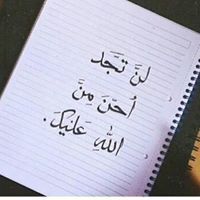 لنَّ تَجَد
أحَنّ مِنَّ
اللهِ عَليكَ.